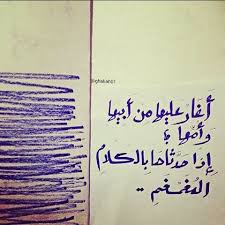 أغار عليها من أبيها
وأمها
إذا حدثاها بالكلام
المُغمغمِ ..